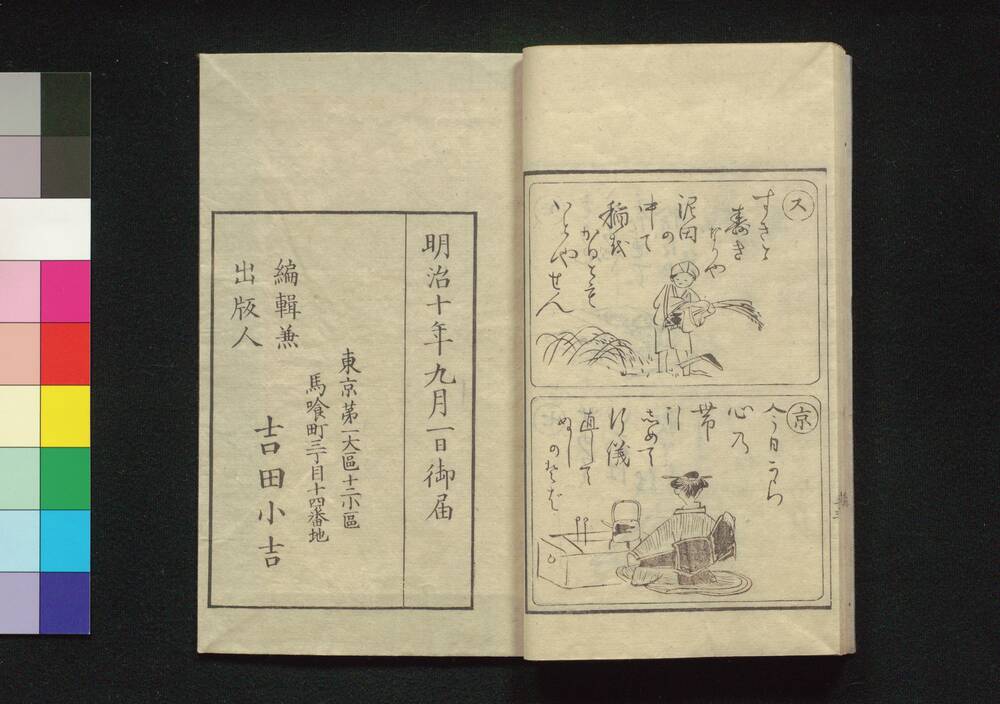 ス
すきと
寿き
なりや
泥田
の
中で
稲を
かるとも
いとやせん
京
今日から
心乃
帯
引
しめて
行儀
直して
ぬし
のそば
明治十年九月一日御届
東京第一大區十二小區
馬喰町三丁目十四番地
編輯兼
出版人
吉田小吉